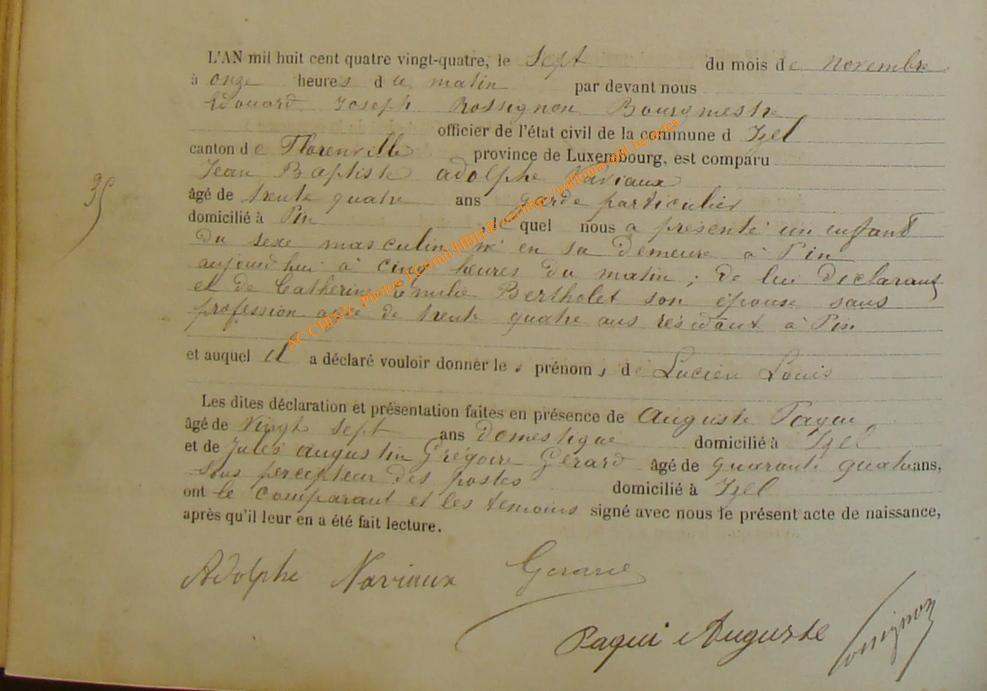 L'AN mil huit cent quatre vingt-quatre, le sept du mois de novembre
à onze heures du matin par devant nous
Edouard Joseph Rossignon Bourgmestre
officier de l'état civil de la commune d Izel
canton de Florenville province de Luxembourg, est comparu
Jean Baptiste adolphe Naviaux
35
âgé de trente quatre ans garde particulier
domicilié à Pin lequel nous a présenté un enfant
du sexe masculin né en sa demeure à Pin
aujourd'hui à cinq heures du matin ; de lui déclarant
et de Catherine Emilie Bertholet son épouse sans
profession agée de trente quatre ans résidant à Pin
et auquel il a déclaré vouloir donner les prénoms de Lucien Louis
Les dites déclaration et présentation faites en présence de Auguste Paqui
âgé de vingt sept ans domestique domicilié à Izel
et de Jules augustin Grégoire Gérard âgé de quarante quatre ans,
sous percepteur des postes domicilié à Izel
ont le comparant et les témoins signé avec nous le présent acte de naissance,
après qu'il leur en a été fait lecture.
Adolphe Naviaux Gerard
Paqui Auguste Rossignon